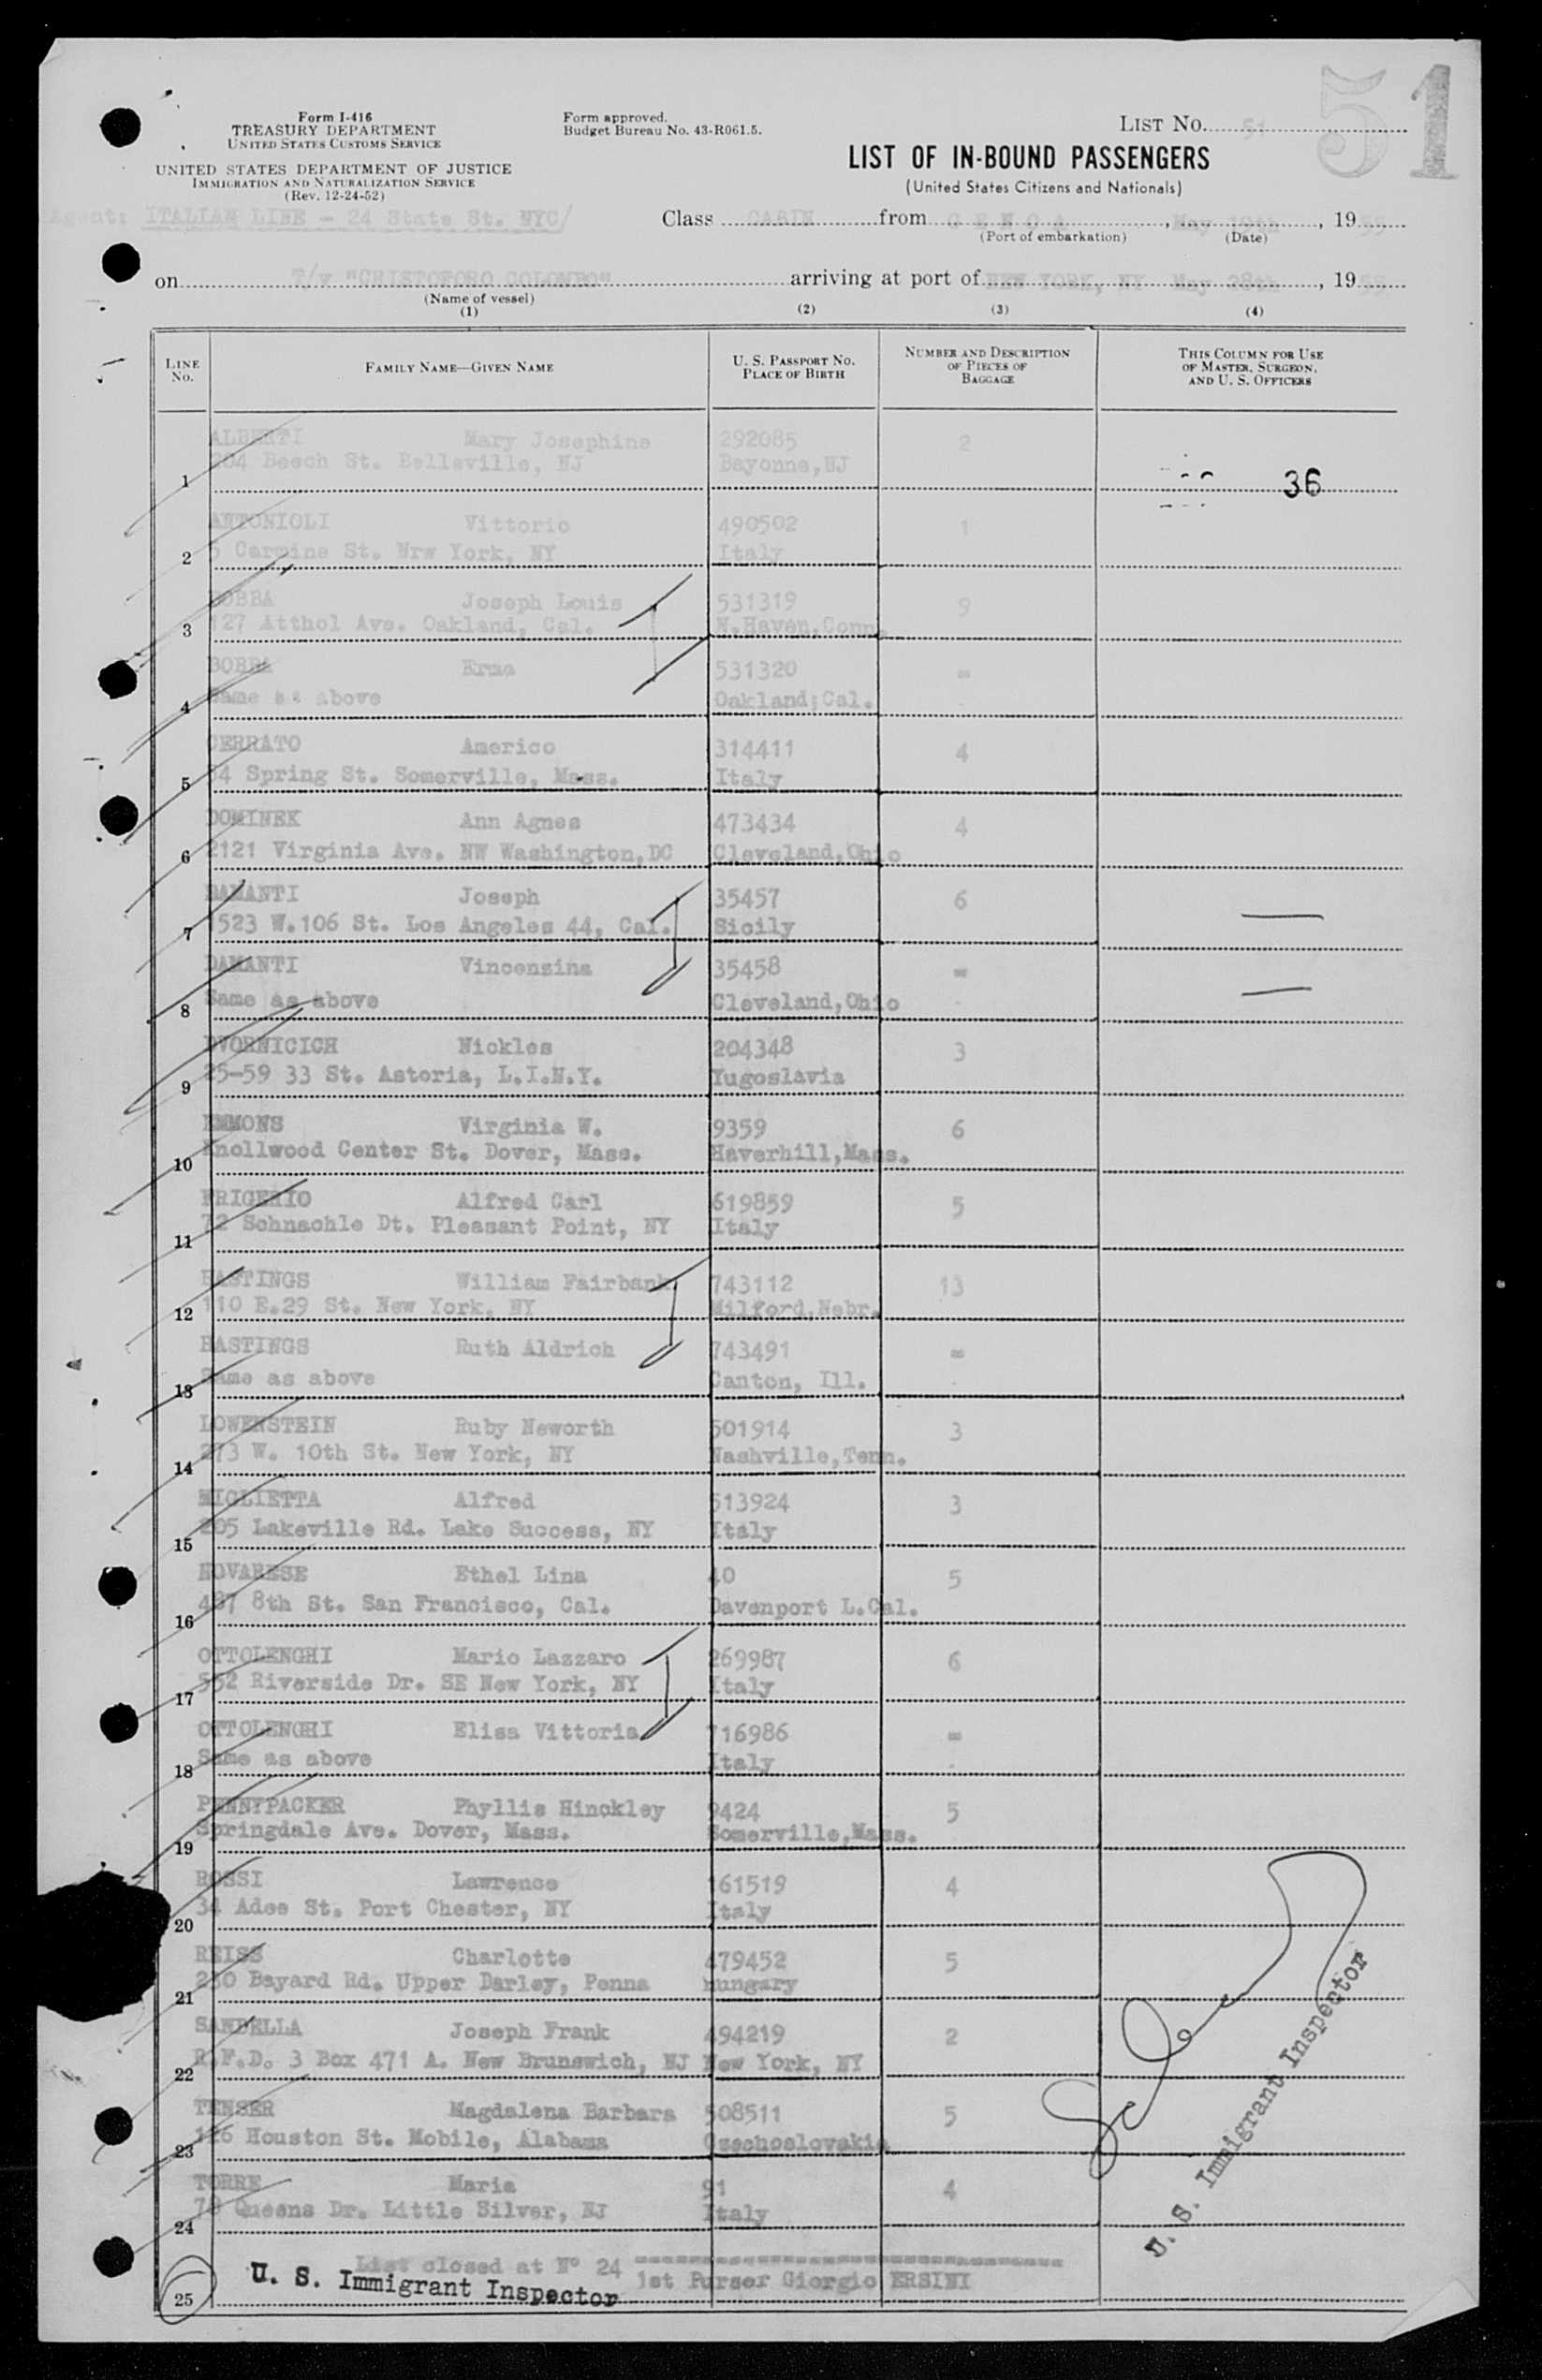 51
Form I-416
TREASURY DEPARTMENT
UNITED STATES CUSTOMS SERVICE
UNITED STATES DEPARTMENT OF JUSTICE
IMMIGRATION AND NATURALIZATION SERVICE
(Rev. 12-24-52)
Form approved.
Budget Bureau No. 43-R061.5.
LIST No. 51
LIST OF IN-BOUND PASSENGERS
(United States Citizens and Nationals)
Agent: ITALIAN LINE - 24 State St. NYC/
Class CABIN from GENOA, May 19th, 1955
(Port of embarkation) (Date)
on T/v "CRISTOFORO COLOMBO" arriving at port of NEW YORK, NY May 28th, 1955
(Name of vessel)
(1) (2) (3) (4)
LINE No. FAMILY NAME—GIVEN NAME U. S. PASSPORT NO. PLACE OF BIRTH NUMBER AND DESCRIPTION OF PIECES OF BAGGAGE THIS COLUMN FOR USE OF MASTER, SURGEON, AND U. S. OFFICERS
ALBERTI Mary Josephine 292085 2
1 204 Beech St. Belleville, NJ Bayonne,NJ 36
ANTONIOLI Vittorio 490502 1
2 5 Carmine St. Nrw York, NY Italy
BOBBA Joseph Louis 531319 9
3 127 Atthol Ave. Oakland, Cal. N.Haven,Conn.
BOBBA Erma 531320 =
4 Same as above Oakland;Cal.
CERRATO Americo 314411 4
5 34 Spring St. Somerville, Mass. Italy
DOMINEK Ann Agnes 473434 4
6 2121 Virginia Ave. NW Washington,DC Cleveland,Ohio
DAMANTI Joseph 35457 6
7 1523 W.106 St. Los Angeles 44, Cal. Sicily
DAMANTI Vincenzina 35458 =
8 Same as above Cleveland,Ohio
DVORNICICH Nickles 204348 3
9 25-59 33 St. Astoria, L.I.N.Y. Yugoslavia
EMMONS Virginia W. 9359 6
10 Knollwood Center St. Dover, Mass. Haverhill,Mass.
FRIGERIO Alfred Carl 619859 5
11 72 Schnachle Dt. Pleasant Point, NY Italy
HASTINGS William Fairbank 743112 13
12 110 E.29 St. New York, NY Milford,Nebr.
HASTINGS Ruth Aldrich 743491 =
13 Same as above Canton, Ill.
LOWENSTEIN Ruby Neworth 501914 3
14 273 W. 10th St. New York, NY Nashville,Tenn.
MIGLIETTA Alfred 513924 3
15 205 Lakeville Rd. Lake Success, NY Italy
NOVARESE Ethel Lina 40 5
16 487 8th St. San Francisco, Cal. Davenport L.Cal.
OTTOLENGHI Mario Lazzaro 269987 6
17 552 Riverside Dr. SE New York, NY Italy
OTTOLENGHI Elisa Vittoria 716986 =
18 Same as above Italy
PENNYPACKER Phyllis Hinckley 9424 5
19 Springdale Ave. Dover, Mass. Somerville,Mass.
ROSSI Lawrence 161519 4
20 34 Adee St. Port Chester, NY Italy
REISS Charlotte 479452 5
21 230 Bayard Rd. Upper Darley, Penna hungary
SANDELLA Joseph Frank 494219 2
22 R.F.D. 3 Box 471 A. New Brunswich, NJ New York, NY
TENSER Magdalena Barbara 508511 5
23 126 Houston St. Mobile, Alabama Czechoslovakia
TORRE Maria 91 4
24 78 Queens Dr. Little Silver, NJ Italy
List closed at Nº 24 ==============================
25 U. S. Immigrant Inspector 1st Purser Giorgio ERSINI
U. S. Immigrant Inspector